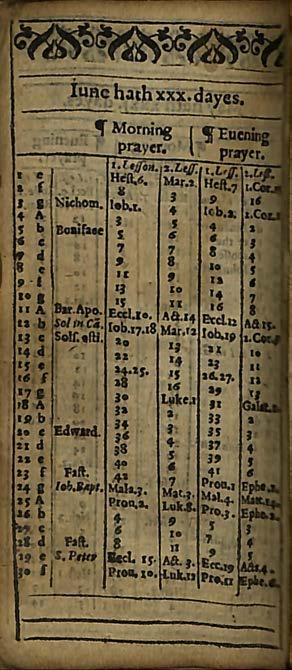 Iune hath xxx. dayes.
¶ Morning ¶ Euening
prayer. prayer.
1. Lesson. 2. Less. 1. Less. 2. Less.
1 e Hest.6. Mar.2. Hest.7 1.Cor.
2 f 8 3 9 16
3 g Nichom. Iob.1. 4 Iob.2. 2.Cor.1
4 A 3 5 4 2
5 b Boniface 5 6 6 3
6 c 7 7 8 4
7 d 9 8 10 5
8 e 11 9 12 6
9 f 13 10 14 7
10 g 15 11 16 8
11 A Bar. Apo. Eccl.10. Act.14 Eccl.12 Act.15.
12 b Sol in Cā. Iob.17.18 Mar.12 Iob.19 2.Cor.
13 c Sols. esti. 20 13 21 10
14 d 22 14 23 11
15 e 24.25. 15 26.27. 12
16 f 28 16 29 13
17 g 30 Luke.1 31 Galat.
18 A 32 2
19 b 34 3 33 2
20 c Edward. 36 35
21 d 38 4 37
22 e 40 5 39 5
23 f Fast. 42 6 41 6
24 g Ioh. Bapt. Mala.3. Mat.3. Mal.4. Mat.14.
25 A Prou.2. Luk.8. Pro.3. Ephe.2.
26 b 4 9 5 3
27 c 6 10 7 4
28 d Fast. 8 11 9 5
29 e S. Peter Eccl. 15. Act.3. Ecc.19 Act.4.
30 f Prou. 10. Luk.12 Pro.11 Ephe.6.